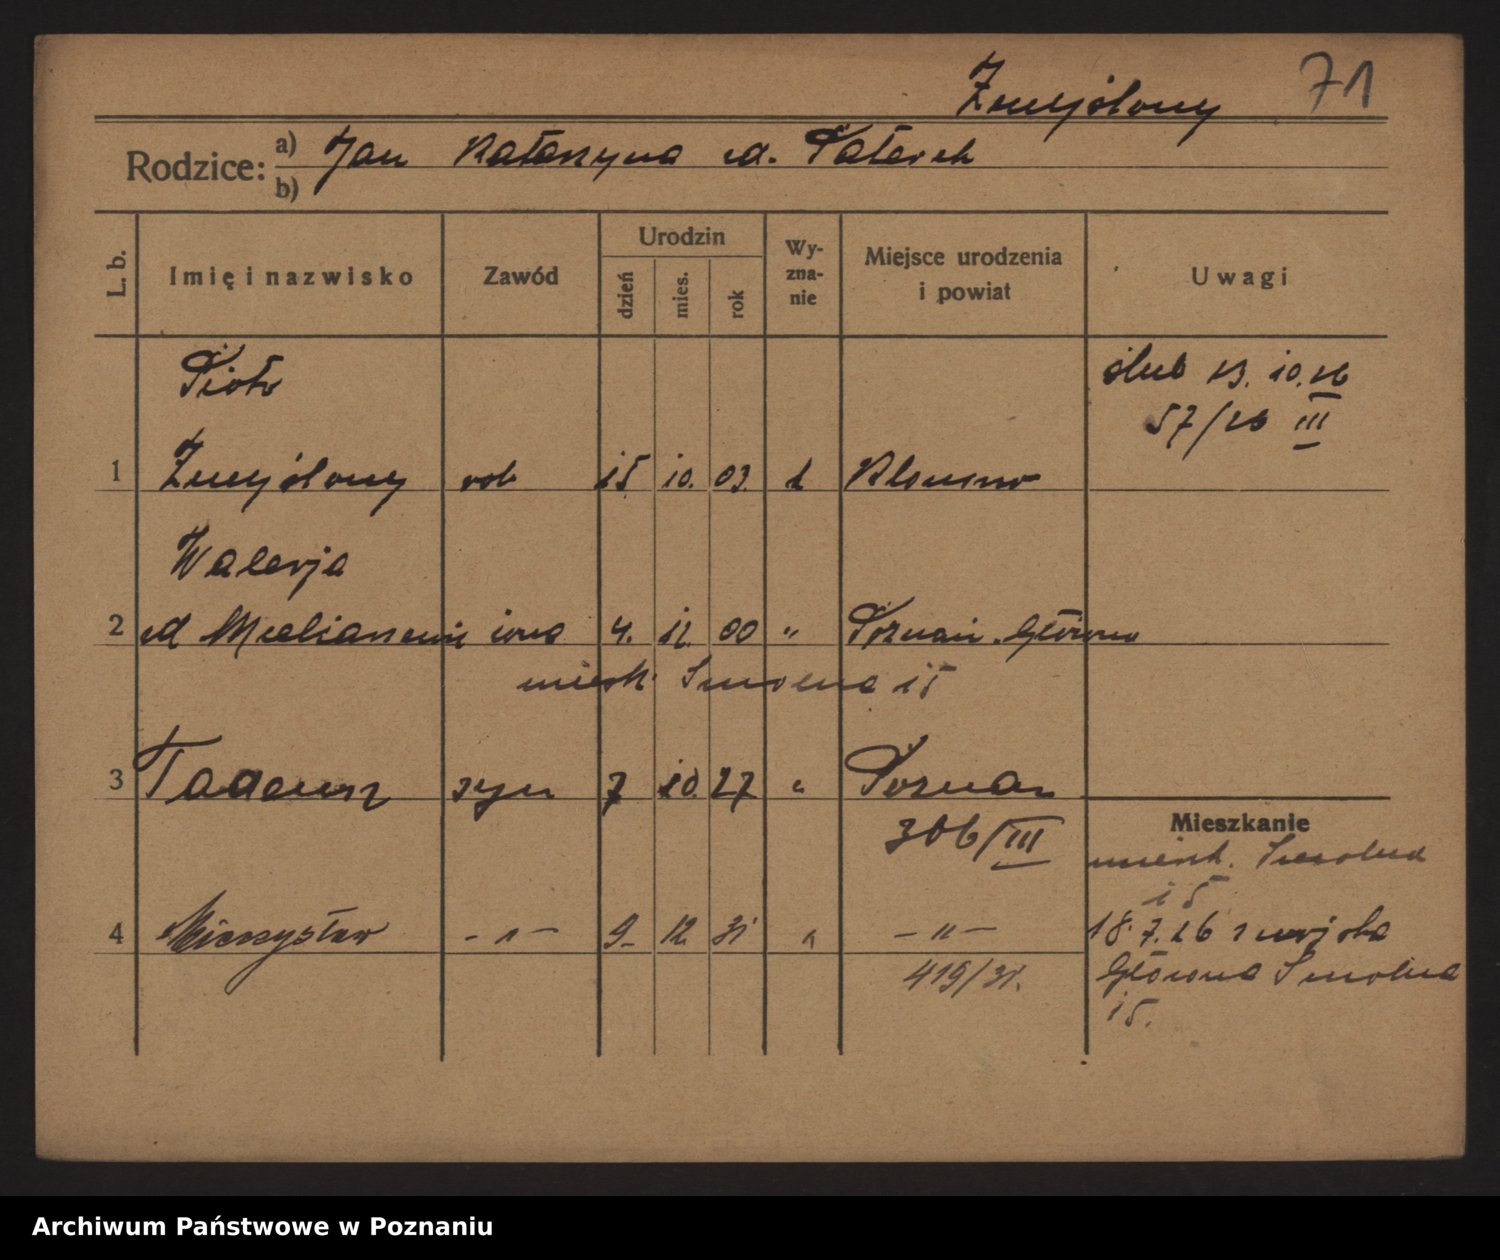 Zmyślony 71
Rodzice: a) Jan Katarzyna zd. Paterek
b)
L. b.
Imię i nazwisko
Zawód
Urodzin
dzień
mies.
rok
Wy-
zna-
nie
Miejsce urodzenia
i powiat
Uwagi
Piotr
ślub 23. 10. 26
57/26 III
1 Zmyślony rob 15. 10. 03. k
Walerja
2 zd żona 4. 12. 00 " Poznań. Główna
mieszk. Smolna 15
3 Tadeusz syn 7 10. 27 " Poznań
306/III
Mieszkanie
mieszk. Smolna
15
4 Mieczysław - " - 9. 12. 31 " - " -
18. 7. 26 z wojska
Główna Smolna
15.
419/31.
Archiwum Państwowe w Poznaniu